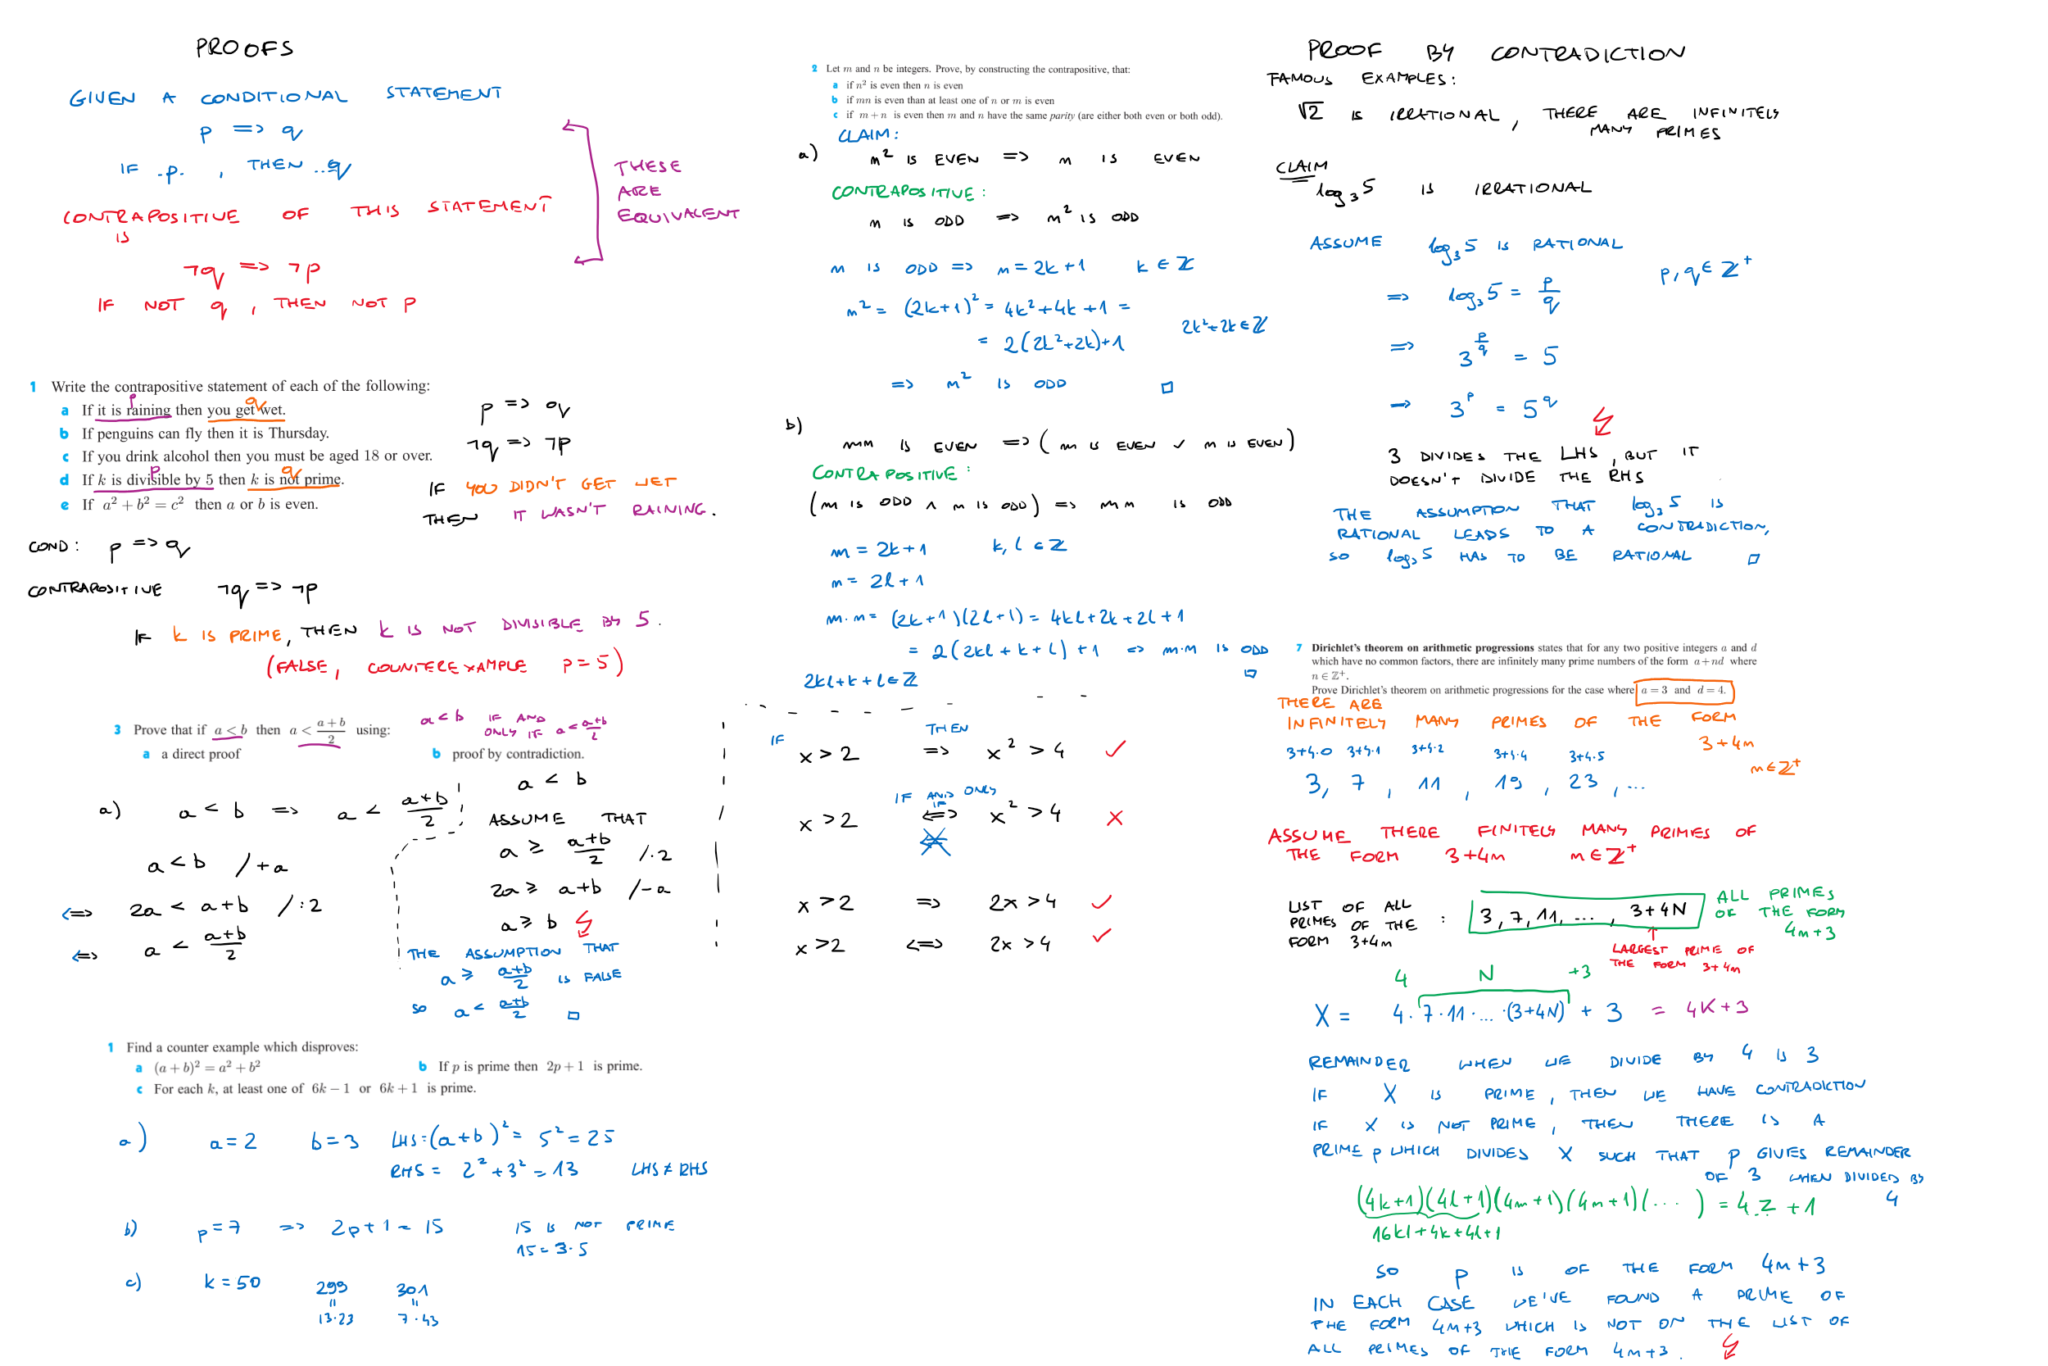 PROOFS
GIVEN A CONDITIONAL STATEMENT
p => q
IF .p. , THEN ..q
CONTRAPOSITIVE OF THIS STATEMENT
IS
¬q => ¬p
IF NOT q , THEN NOT p
THESE
ARE
EQUIVALENT
1 Write the contrapositive statement of each of the following:
p q
a If it is raining then you get wet.
b If penguins can fly then it is Thursday.
c If you drink alcohol then you must be aged 18 or over.
p q
d If k is divisible by 5 then k is not prime.
e If a² + b² = c² then a or b is even.
p => q
¬q => ¬p
IF YOU DIDN'T GET WET
THEN IT WASN'T RAINING.
COND : p => q
CONTRAPOSITIVE ¬q => ¬p
IF k IS PRIME, THEN k IS NOT DIVISIBLE BY 5.
(FALSE, COUNTEREXAMPLE P=5)
3 Prove that if a < b then a < (a+b)/2 using:
a a direct proof b proof by contradiction.
a<b IF AND ONLY IF a < (a+b)/2
a) a < b => a < (a+b)/2
a < b /+a
<=> 2a < a+b /:2
<=> a < (a+b)/2
a < b
ASSUME THAT
a ≥ (a+b)/2 /·2
2a ≥ a+b /-a
a ≥ b
THE ASSUMPTION THAT
a ≥ (a+b)/2 IS FALSE
SO a < (a+b)/2 □
1 Find a counter example which disproves:
a (a + b)² = a² + b² b If p is prime then 2p + 1 is prime.
c For each k, at least one of 6k − 1 or 6k + 1 is prime.
a) a=2 b=3 LHS=(a+b)² = 5² = 25
RHS = 2²+3² = 13 LHS ≠ RHS
b) p=7 => 2p+1 = 15 15 IS NOT PRIME
15 = 3·5
c) k=50 299 301
= =
13·23 7·43
2 Let m and n be integers. Prove, by constructing the contrapositive, that:
a if n² is even then n is even
b if mn is even than at least one of n or m is even
c if m + n is even then m and n have the same parity (are either both even or both odd).
CLAIM:
a) n² IS EVEN => n IS EVEN
CONTRAPOSITIVE:
n IS ODD => n² IS ODD
n IS ODD => n = 2k+1 k ∈ ℤ
n² = (2k+1)² = 4k²+4k+1 =
= 2(2k²+2k)+1 2k²+2k ∈ ℤ
=> n² IS ODD □
b)
mn IS EVEN => (m IS EVEN ∨ n IS EVEN)
CONTRAPOSITIVE:
(m IS ODD ∧ n IS ODD) => mn IS ODD
m = 2k+1 k, l ∈ ℤ
n = 2l+1
m·n = (2k+1)(2l+1) = 4kl+2k+2l+1
= 2(2kl+k+l)+1 => m·n IS ODD
2kl+k+l ∈ ℤ □
IF THEN
x>2 => x²>4 ✓
IF AND ONLY
IF
x>2 <=> x²>4 ×
x>2 => 2x>4 ✓
x>2 <=> 2x>4 ✓
PROOF BY CONTRADICTION
FAMOUS EXAMPLES:
√2 IS IRRATIONAL, THERE ARE INFINITELY
MANY PRIMES
CLAIM
log₃5 IS IRRATIONAL
ASSUME log₃5 IS RATIONAL
=> log₃5 = p/q p,q ∈ ℤ⁺
=> 3^(p/q) = 5
=> 3^p = 5^q
3 DIVIDES THE LHS, BUT IT
DOESN'T DIVIDE THE RHS
THE ASSUMPTION THAT log₃5 IS
RATIONAL LEADS TO A CONTRADICTION,
SO log₃5 HAS TO BE RATIONAL □
7 Dirichlet's theorem on arithmetic progressions states that for any two positive integers a and d
which have no common factors, there are infinitely many prime numbers of the form a + nd where
n ∈ ℤ⁺.
Prove Dirichlet's theorem on arithmetic progressions for the case where a = 3 and d = 4.
THERE ARE
INFINITELY MANY PRIMES OF THE FORM
3+4m
m∈ℤ⁺
3+4·0 3+4·1 3+4·2 3+4·4 3+4·5
3, 7, 11, 19, 23, ...
ASSUME THERE FINITELY MANY PRIMES OF
THE FORM 3+4m m∈ℤ⁺
LIST OF ALL
PRIMES OF THE :
FORM 3+4m
3, 7, 11, ..., 3+4N
ALL PRIMES
OF THE FORM
4m+3
LARGEST PRIME OF
THE FORM 3+4m
4 N +3
X = 4·7·11·...·(3+4N) + 3 = 4K+3
REMAINDER WHEN WE DIVIDE BY 4 IS 3
IF X IS PRIME, THEN WE HAVE CONTRADICTION
IF X IS NOT PRIME, THEN THERE IS A
PRIME p WHICH DIVIDES X SUCH THAT p GIVES REMAINDER
OF 3 WHEN DIVIDED BY
4
(4k+1)(4l+1)(4m+1)(4n+1)(...) = 4z+1
16kl+4k+4l+1
SO p IS OF THE FORM 4m+3
IN EACH CASE WE'VE FOUND A PRIME OF
THE FORM 4m+3 WHICH IS NOT ON THE LIST OF
ALL PRIMES OF THE FORM 4m+3.